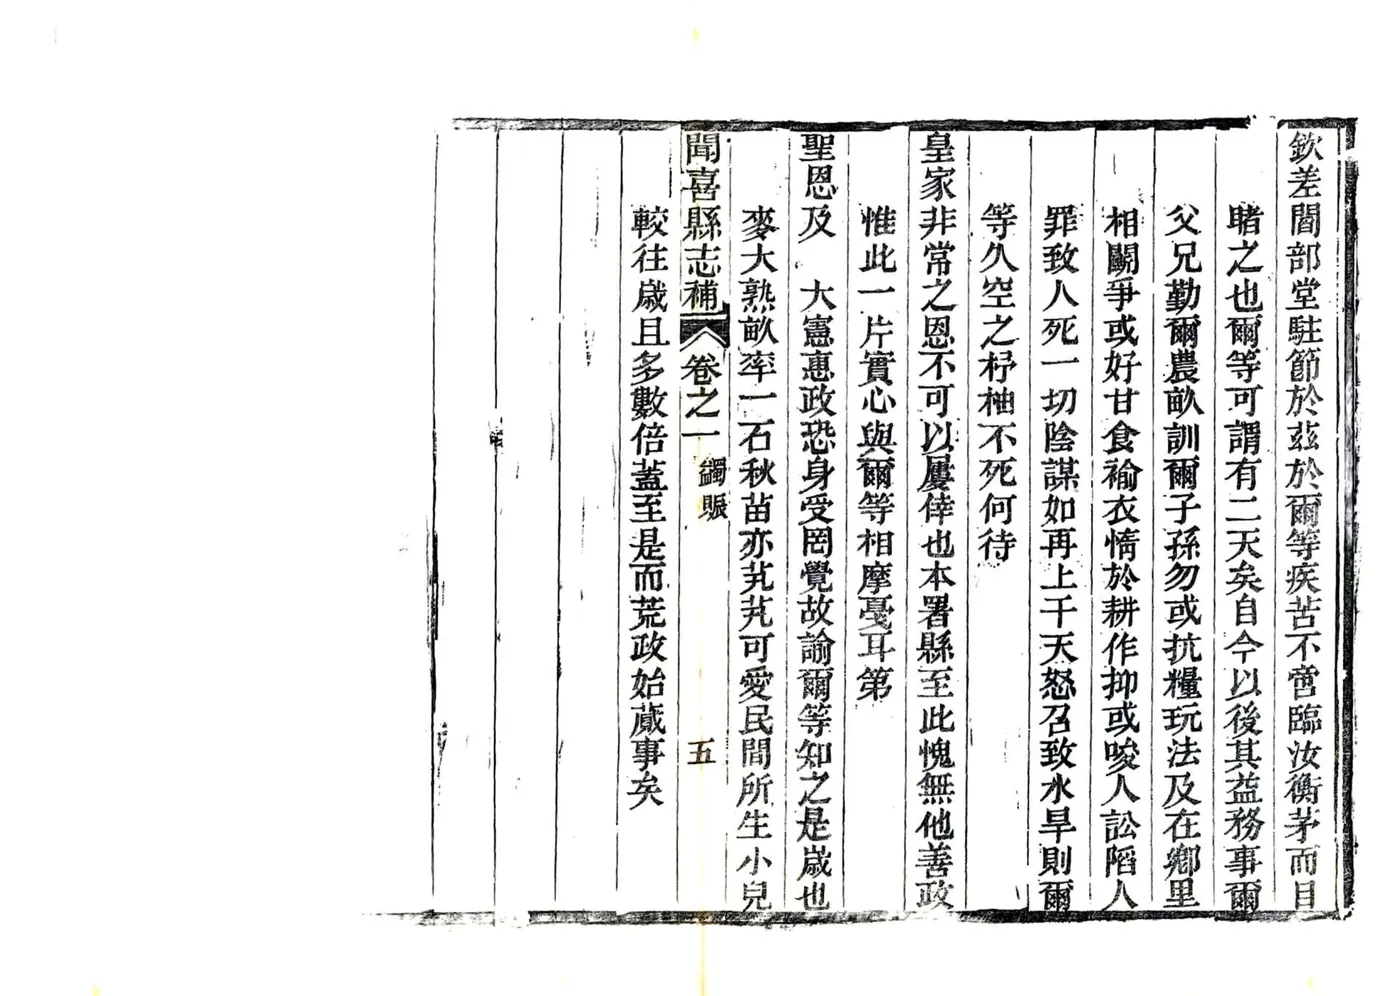 欽差閻部堂駐節於茲於爾等疾苦不啻臨汝衡茅而目
睹之也爾等可謂有二天矣自今以後其益務事爾
父兄勤爾農畝訓爾子孫勿或抗糧玩法及在鄉里
相鬭爭或好甘食褕衣惰於耕作抑或唆人訟陷人
罪致人死一切陰謀如再上千天怒召致水旱則爾
等久空之杼柚不死何待
皇家非常之恩不可以屢倖也本署縣至此愧無他善政
惟此一片實心與爾等相摩戞耳第
聖恩及　大憲惠政恐身受罔覺故諭爾等知之是歲也
麥大熟畝率一石秋苗亦芃芃可愛民間所生小兒
聞喜縣志補　卷之一　蠲賑　五
較往歲且多數倍蓋至是而荒政始蕆事矣